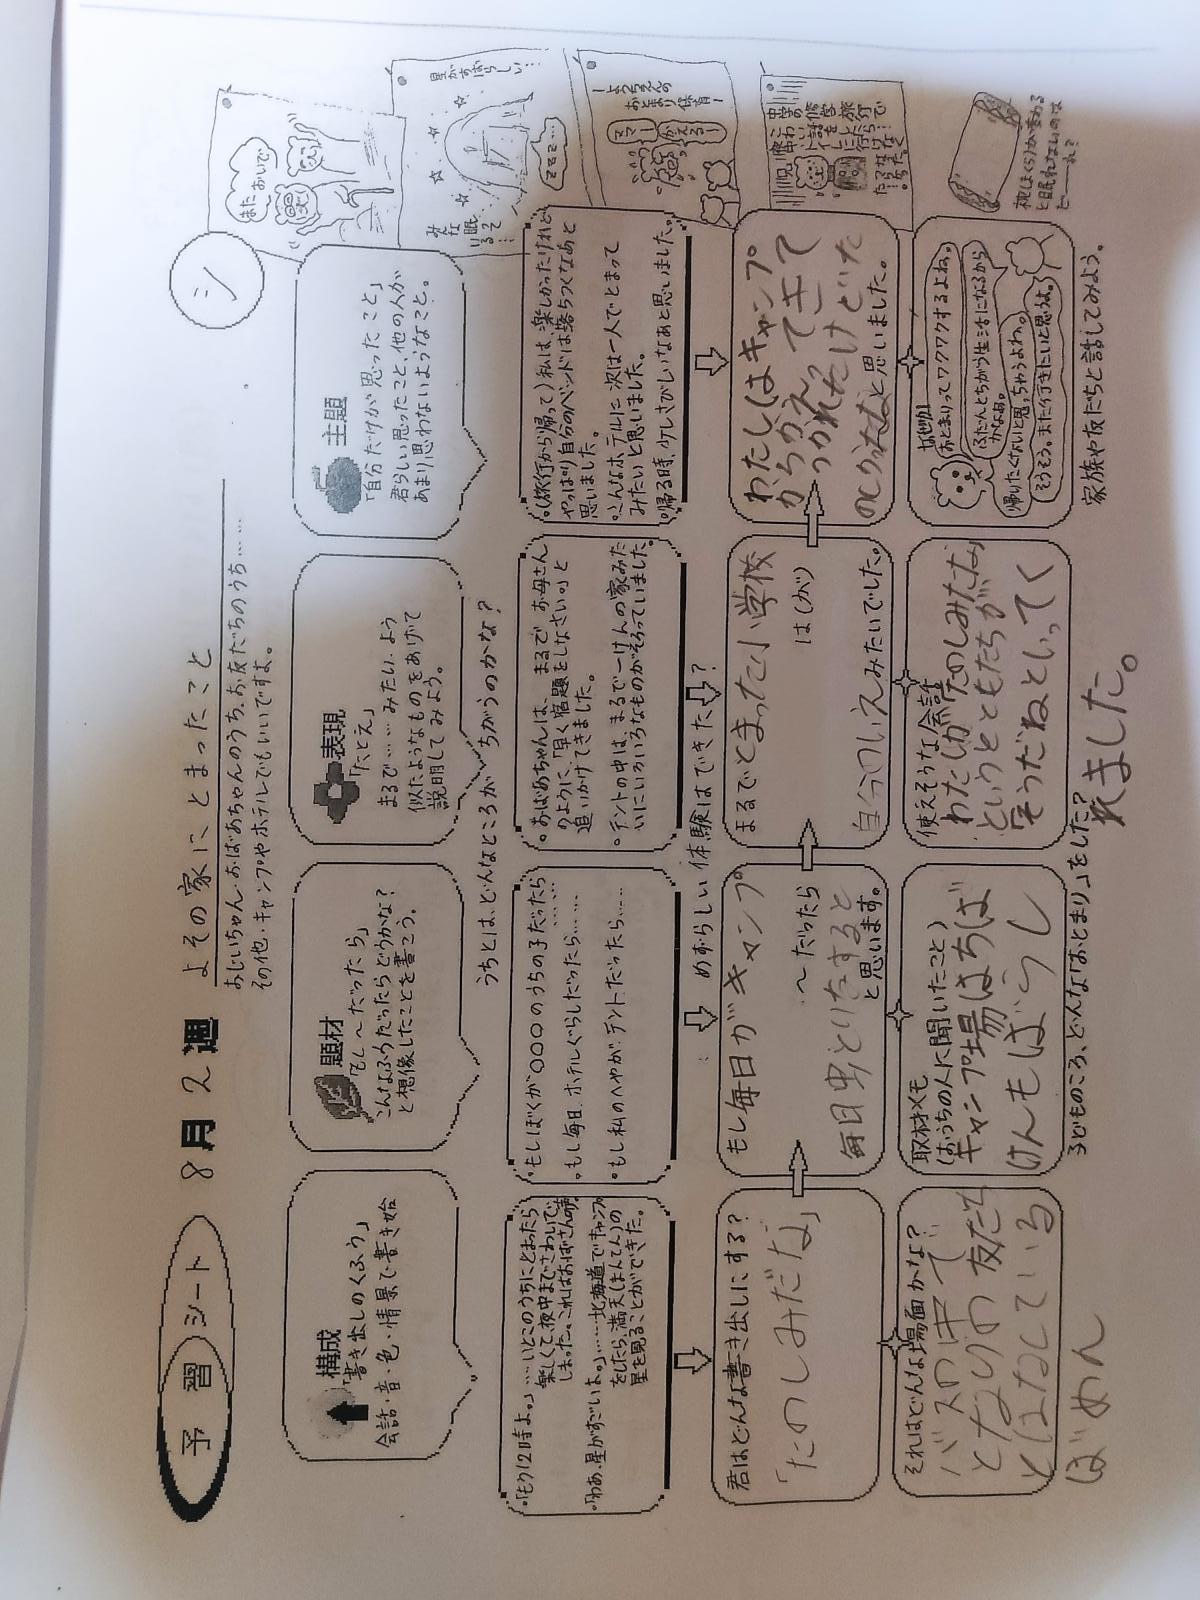 予習シート
8月2週
よその家にとまったこと
おじいちゃん・おばあちゃんのうち、お友だちのうち……
その他・キャンプやホテルでもいいですよ。
シ
構成
「書き出しのくふう」
会話・音・色・情景で書き始
題材
「もし〜だったら」
こんなふうだったらどうかな?
と想像したことを書こう。
表現
「たとえ」
まるで……みたい、よう
似たようなものをあげて
説明してみよう。
主題
「自分だけが思ったこと」
君らしい思ったこと、他の人が
あまり思わないようなこと。
うちとは、どんなところがちがうのかな?
・「もう12時よ。」……いとこのうちにとまったら
楽しくて、夜中までさわいで
しまった。これはおばさんの声。
・「わあ、星がすごいよ。」……北海道でキャンプ
をしたら、満天(まんてん)の
星を見ることができた。
・もしぼくが〇〇〇のうちの子だったら
・もし毎日、ホテルぐらしだったら……
・もし私のへやが、テントだったら……
・おばあちゃんは、まるでお母さん
のように、「早く宿題をしなさい。」と
追いかけてきました。
・テントの中は、まるで一けんの家みた
いにいろいろなものがそろっていました。
・(旅行から帰って)私は、楽しかったけれど
やっぱり自分のベッドは落ちつくなあと
思いました。
・こんなホテルに、次は一人でとまって
みたいと思いました。
・帰る時、少しさびしいなあと思いました。
めずらしい体験はできた?
君はどんな書き出しにする?
「たのしみだな」
もし毎日がキャンプ
〜だったら
毎日虫とりをすると
と思います。
まるでとまった小学校
は(が)
自分のいえみたいでした。
わたしはキャンプ
からかえってきて
つかれたけどいた
と思いました。
それはどんな場面かな?
バスの中で
となりの友だち
とはなしている
ばめん
取材メモ
(おうちの人に聞いたこと)
キャンプ場はちば
けんもばらし
使えそうな会話
わたしが「たのしみだな」
というとともだちが「
そうだねといってく
れました。
なぜか
おとまりってワクワクするよね。
ふだんとちがう生活になるから
かなあ。
帰りたくないと思っちゃうよね。
そうそう。また行きたいと思うよ。
子どものころ、どんな「おとまり」をした?
家族や友だちと話してみよう。
またおいで
星がすばらしい…
みんな眠ってる…
ZZZ…
ーようちえんの
おとまり保育ー
ママー
かえるー
枕(まくら)が変わる
と眠れないのは
だーーれ?